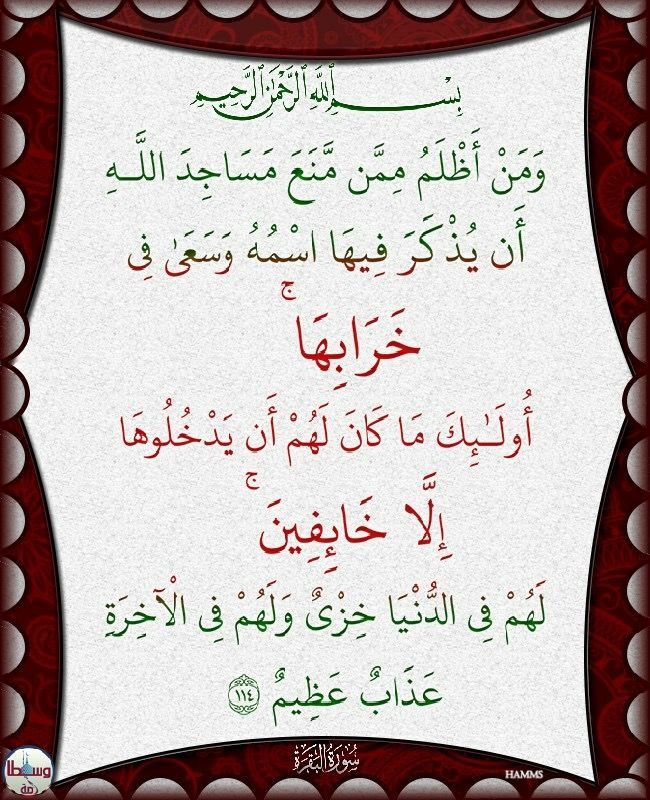 بِسْمِ اللَّهِ الرَّحْمَٰنِ الرَّحِيمِ
وَمَنْ أَظْلَمُ مِمَّن مَّنَعَ مَسَاجِدَ اللَّـهِ
أَن يُذْكَرَ فِيهَا اسْمُهُ وَسَعَىٰ فِي
خَرَابِهَا ۚ
أُولَـٰئِكَ مَا كَانَ لَهُمْ أَن يَدْخُلُوهَا
إِلَّا خَائِفِينَ ۚ
لَهُمْ فِي الدُّنْيَا خِزْيٌ وَلَهُمْ فِي الْآخِرَةِ
عَذَابٌ عَظِيمٌ ﴿١١٤﴾
سُورَةُ الْبَقَرَةِ
HAMMS